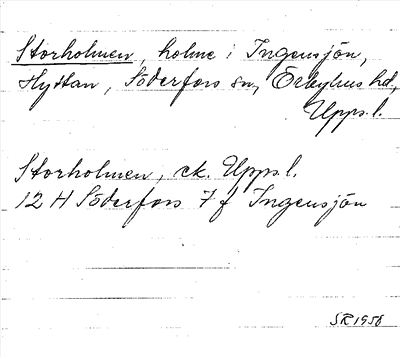 Storholmen, holme i Ingensjön,
Hyttan, Söderfors sn, Örbyhus hd,
Upps. l.
Storholmen, ek. Upps l.
12 H Söderfors 7 f Ingensjön
SR 1958